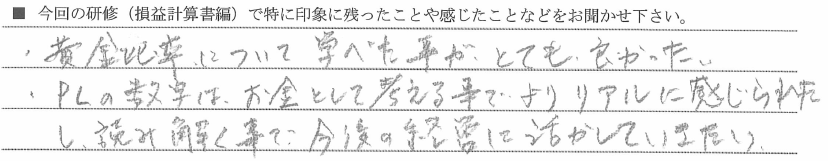 ■ 今回の研修（損益計算書編）で特に印象に残ったことや感じたことなどをお聞かせ下さい。
・黄金比率について学べた事がとても良かった。
・PLの数字は、お金として考える事でよりリアルに感じられた
し、読み解く事で今後の経営に活かしていきたい。